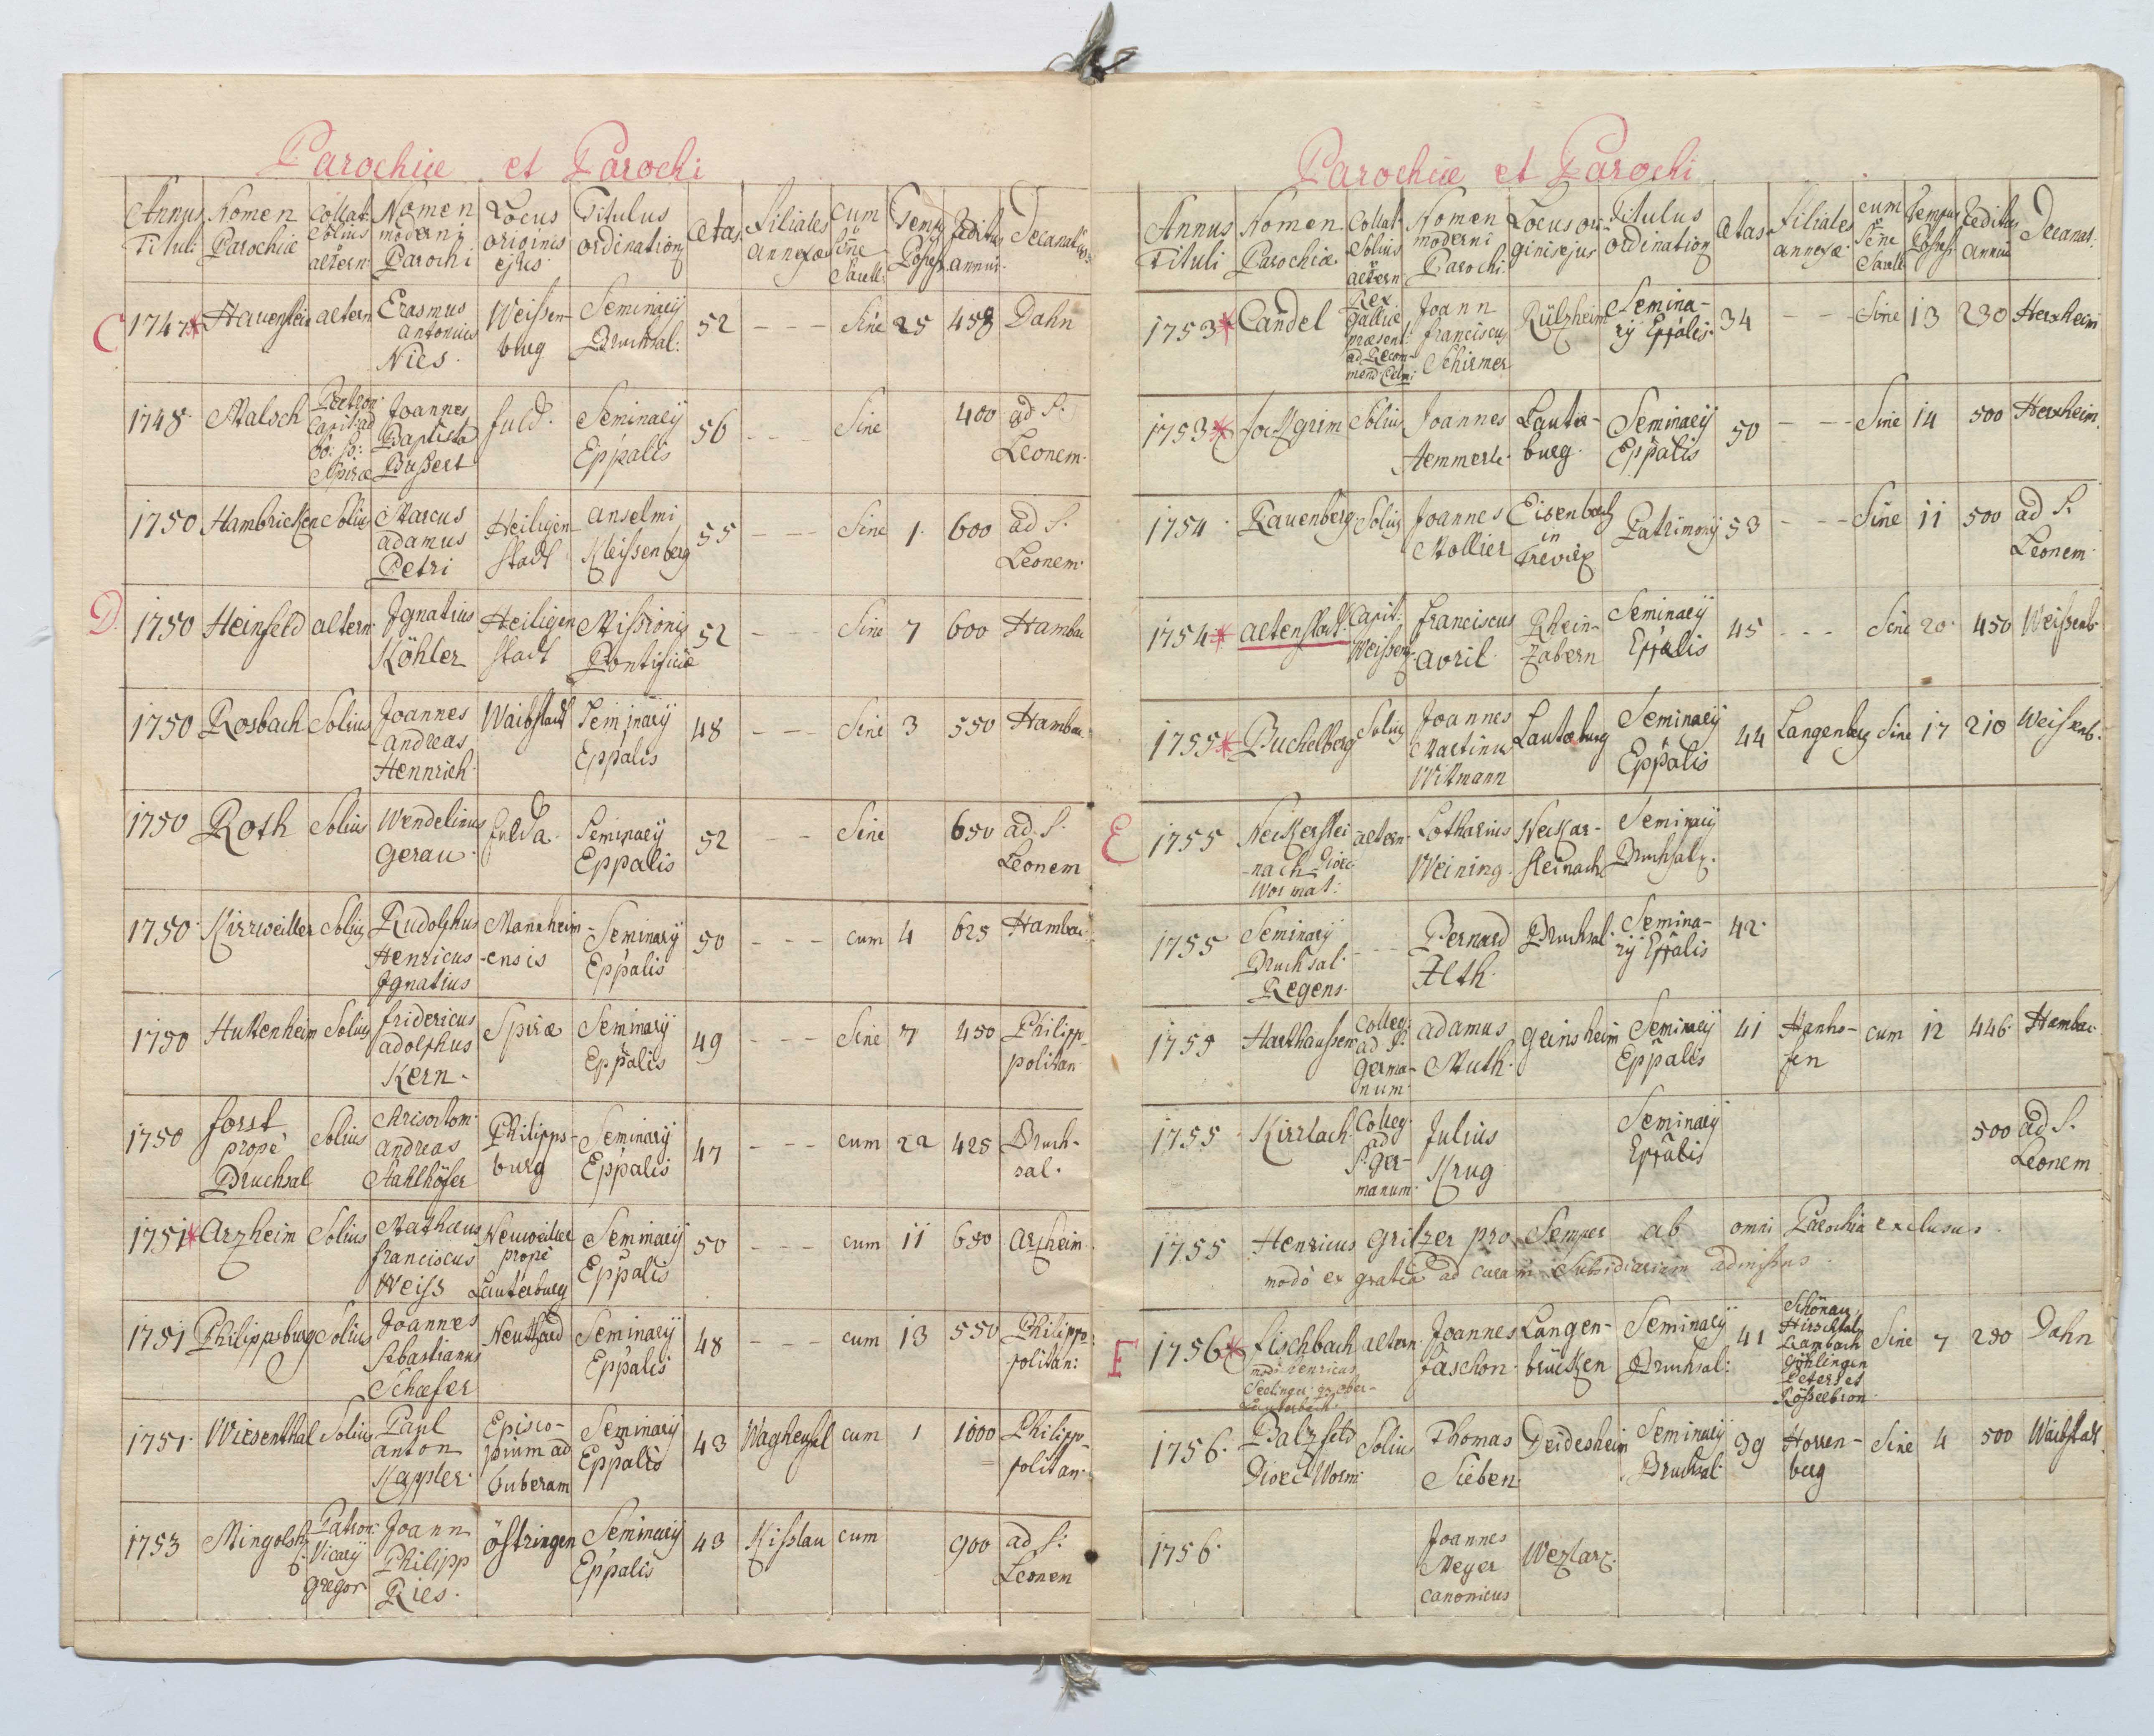 Parochiæ et Parochi
Annus Tituli Nomen Parochiæ Collat: Solius altern: Nomen moderni Parochi Locus originis ejus Titulus ordinationis ætas Filiales annexæ cum sine Sacell: Temp: Posses: Reditus annui Decanatus
C 1747* Hauenstein altern Erasmus antonius Nies. Weissenburg Seminarij Bruchsal: 52 - - - Sine 25 458 Dahn
1748. Malsch Patron: Capit: ad Spiræ Joannes Baptista Bussert fuld. Seminarij Eppalis 56 - - - Sine 400 ad S. Leonem.
1750 Hambricken Solius Marcus adamus Petri Heiligenstadt anselmi Kleissenberg 55 - - - Sine 1. 600 ad S. Leonem.
D. 1750 Heinfeld altern. Ignatius Köhler Heiligenstadt Missionis Pontificiæ 52 - - - Sine 7 600 Hambac
1750 Rosbach Solius Joannes andreas Hennrich. Waibstadt Seminarij Eppalis 48 - - - Sine 3 550 Hambac
1750 Roth Solius Wendelinus Gerau. fulda. Seminarij Eppalis 52 - - Sine 650 ad. S. Leonem
1750. Kirrweiller Solius Rudolphus Henricus Ignatius Mannheim-ensis Seminarij Eppalis 50 - - - cum 4 625 Hambac.
1750 Huttenheim Solius fridericus adolphus Kern. Spiræ Seminarij Eppalis 49 - - - Sine 7 450 Philipp-politan
1750 forst propè Bruchsal Solius Chrisostom. andreas Stahlhöfer Philippsburg Seminarij Eppalis 47 - - - cum 22 425 Bruch-sal.
1751* Arzheim Solius Mathæus franciscus Weiss Neuweiller propè Lauterburg Seminarij Eppalis 50 - - - cum 11 650 Arzheim.
1751 Philippsburg Solius Joannes Sebastianus Schæfer Neuthard Seminarij Eppalis 48 - - cum 13 550 Philipp-politan:
1751. Wiesenthal Solius Paul anton Kappler. Episcopium ad Tuberam Seminarij Eppalis 43 Waghensel cum 1 1000 Philipp-politan.
1753 Mingolsh. Patron: Vicarij gregor Joann Philipp Ries. östringen Seminarij Eppalis 43 Kisslau cum 900 ad S: Leonem
Parochiæ et Parochi
Annus Tituli Nomen Parochiæ Collat Solius altern Nomen moderni Parochi Locus originis ejus Titulus ordination ætas Filiales annexæ cum sine Sacell Tempus Posses: Reditus annui Decanat.
1753* Candel Rex Galliæ præsent: ad Recommend Celmi Joann franciscus Schirmer Rülzheim Semina-rij Eppalis. 34 - - - Sine 13 230 Herxheim
1753* Jockgrim Solius Joannes Hemmerle. Lauterburg. Seminarij Eppalis 50 - - - Sine 14 500 Herxheim.
1754. Rauenberg Solius Joannes Mollier Eisenbach in Trevir Patrimonij 53 - - - Sine 11 500 ad S. Leonem.
1754* altenstatt. Capit: Weissen. franciscus avril. Rhein-zabern Seminarij Eppalis 45 - - - Sine 20. 450 Weissenb.
1755* Buchelberg Solius Joannes Martinus Witmann Lauterburg Seminarij Eppalis 44 Langenberg Sine 17 210 Weissenb.
E 1755 Neckerstei-nach Dioec. Wormat: altern. Lotharius Weining. Neckar-steinach Seminarij Bruchsal.
1755 Seminarij Bruchsal. Regens. - - Bernard Alth. Bruchsal. Semina-rij Eppalis 42.
1755 Harthaussen Colleg: ad S. Germa-num. adamus Muth. Geinsheim Seminarij Eppalis 41 Hanho-fen cum 12 446. Hambac.
1755. Kirrlach. Colleg. ad S. Ger-manum. Julius Krug Seminarij Eppalis 500 ad S. Leonem
1755 Henricus Gritzer pro Semper ab omni Parochia exclusus.
modò ex gratia ad curam Subsidiariam admissus.
F 1756* Fischbach altern. Joannes Faschon. Langen-brücken Seminarij Bruchsal: 41 Schönau, Hirschtal, Rambach Göhlingen Petersb Rösselbron. Sine 7 250 Dahn
modò Henricus Seelinger
1756. Balzfeld Dioec. Worm. Solius Thomas Sieben. Deidesheim Seminarij Bruchsal. 39 Horren-berg Sine 4 500 Waibstatt.
1756. Joannes Meyer canonicus Wezlar.